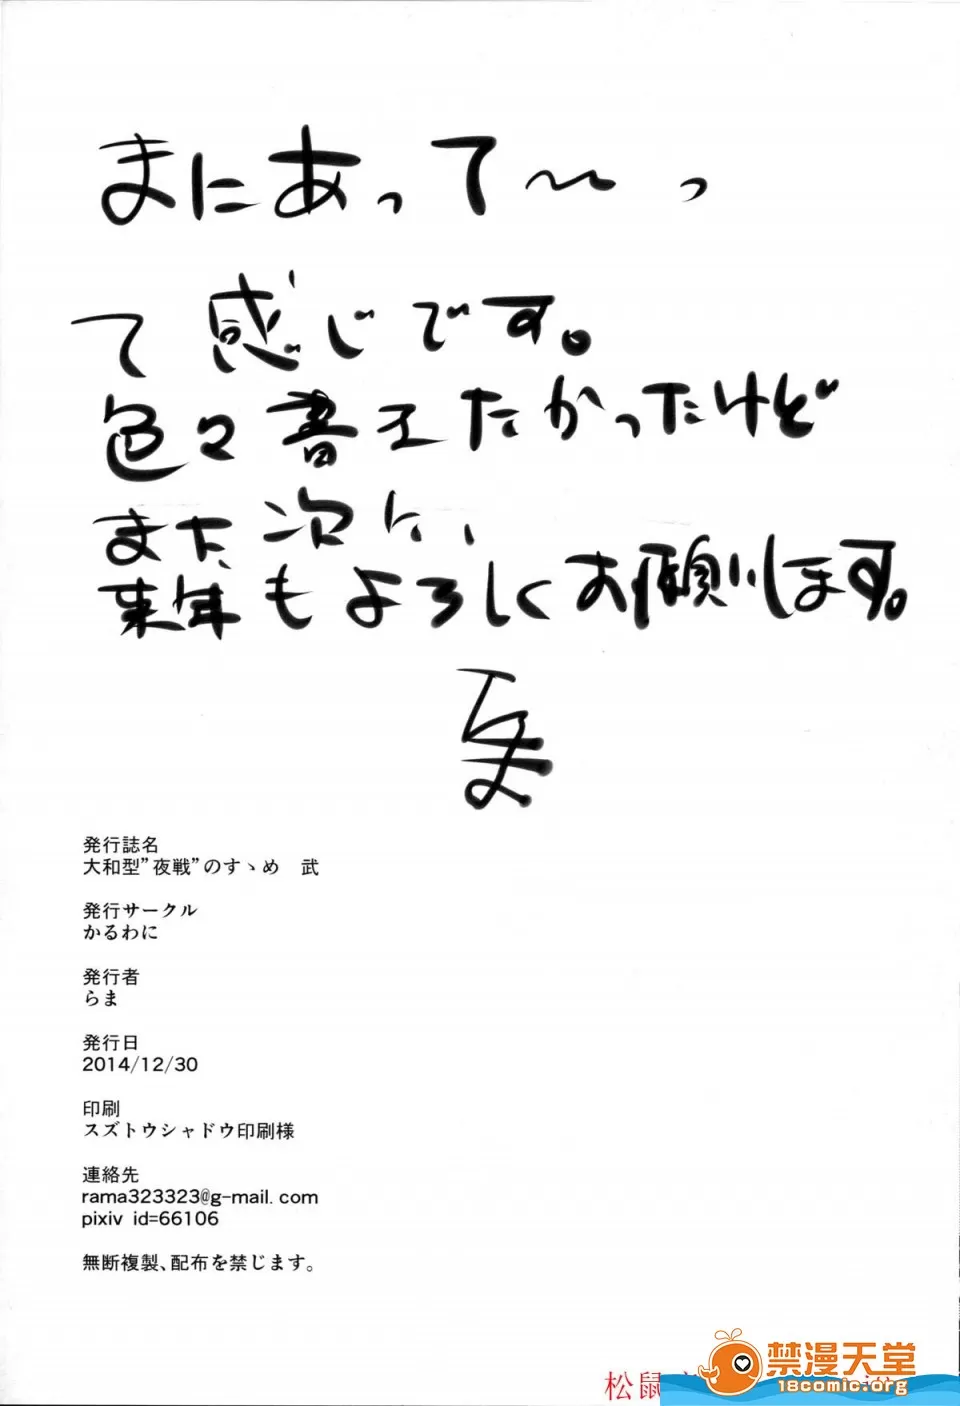 まにあって〜っ
て感じです。
色々書きたかったけど
また次に、
来年もよろしくお願いします。
らま
発行誌名
大和型”夜戦”のすゝめ　武
発行サークル
かるわに
発行者
らま
発行日
2014/12/30
印刷
スズトウシャドウ印刷様
連絡先
rama323323@g-mail.com
pixiv id=66106
無断複製、配布を禁じます。
松鼠
禁漫天堂
18comic.org